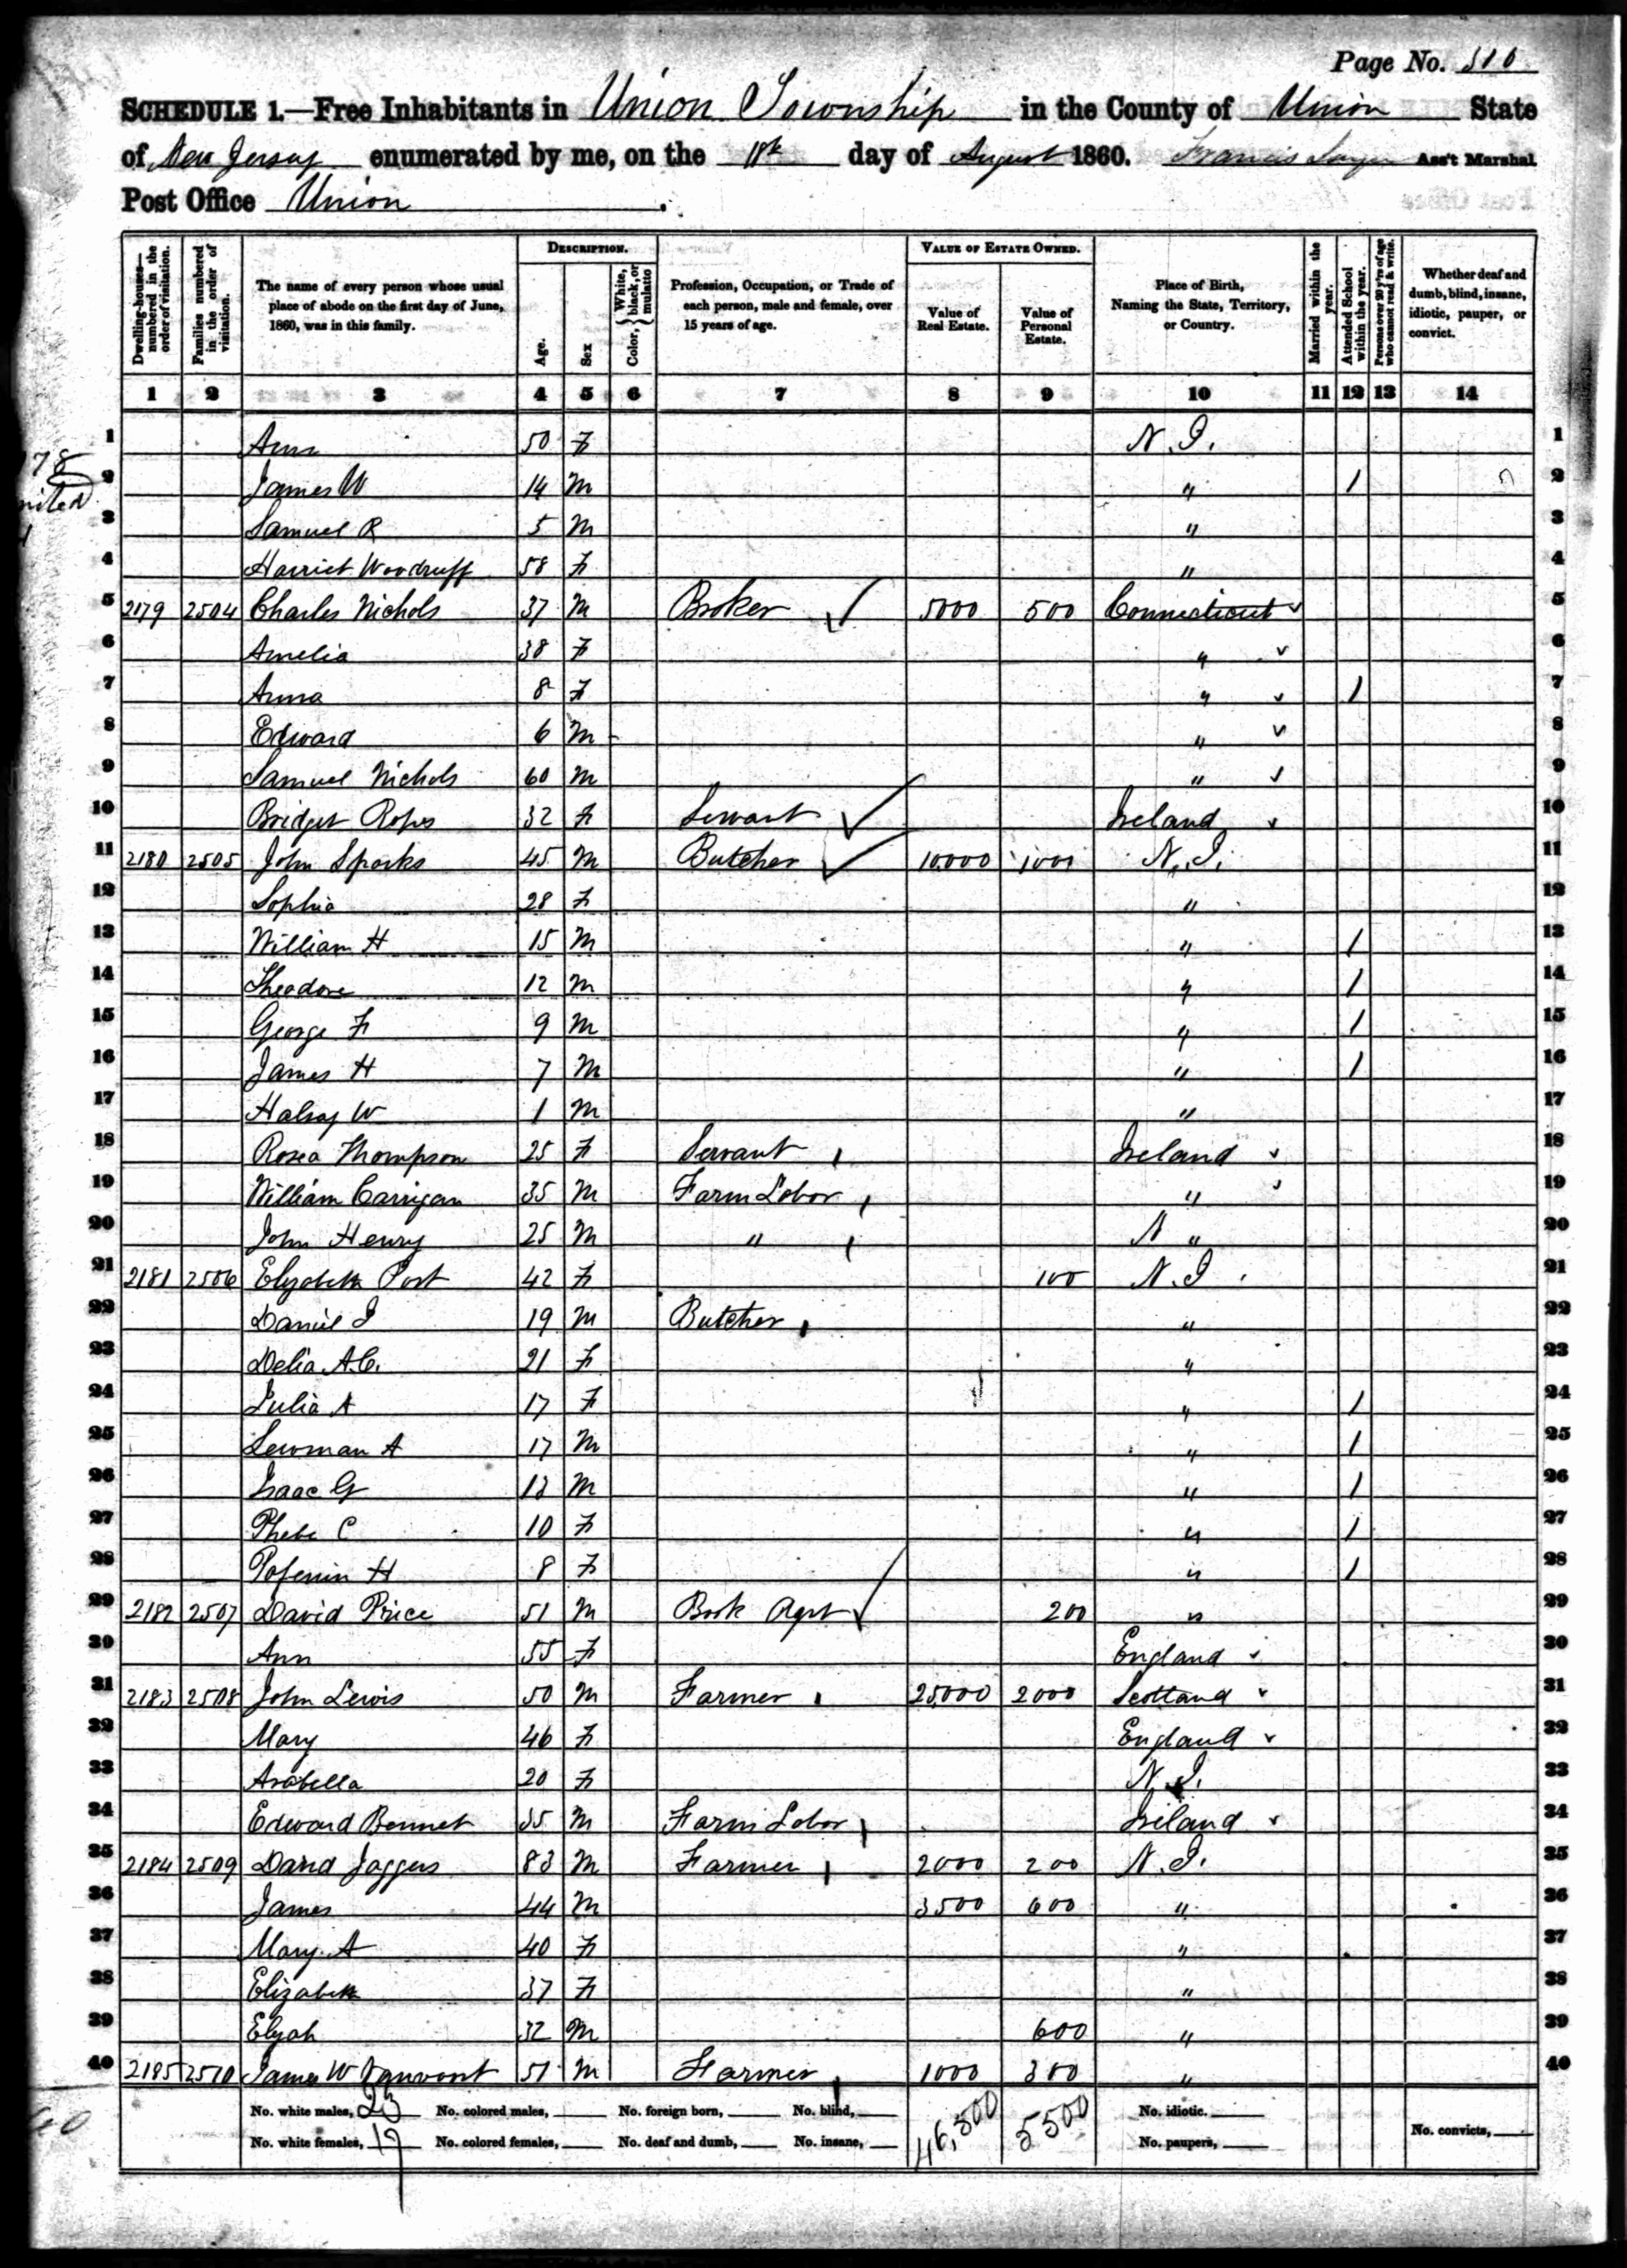 Page No. 510
SCHEDULE 1.—Free Inhabitants in Union Township in the County of Union State
of New Jersey enumerated by me, on the 11th day of August 1860. Francis Ass't Marshal.
Post Office Union.
Dwelling-houses—numbered in the order of visitation. Families numbered in the order of visitation. The name of every person whose usual place of abode on the first day of June, 1860, was in this family. DESCRIPTION. Age. Sex Color, {White, black, or mulatto Profession, Occupation, or Trade of each person, male and female, over 15 years of age. VALUE OF ESTATE OWNED. Value of Real Estate. Value of Personal Estate. Place of Birth, Naming the State, Territory, or Country. Married within the year. Attended School within the year. Persons over 20 y'rs of age who cannot read & write. Whether deaf and dumb, blind, insane, idiotic, pauper, or convict.
1 2 3 4 5 6 7 8 9 10 11 12 13 14
1 Ann 50 F N.J. 1
2 James W 14 M " 1 2
3 Samuel R 5 M " 3
4 Harriet Woodruff 58 F " 4
5 2179 2504 Charles Nichols 37 M Broker 5000 500 Connecticut 5
6 Amelia 38 F " 6
7 Anna 8 F " 1 7
8 Edward 6 M " 8
9 Samuel Nichols 60 M " 9
10 Bridget 32 F Servant Ireland 10
11 2180 2505 John Sparks 45 M Butcher 10000 1000 N.J. 11
12 Sophia 28 F " 12
13 William H 15 M " 1 13
14 Theodore 12 M " 1 14
15 George F 9 M " 1 15
16 James H 7 M " 1 16
17 Halsey W 1 M " 17
18 Rosea Thompson 25 F Servant Ireland 18
19 William Carrigan 35 M Farm Labor " 19
20 John Henry 25 M " N " 20
21 2181 2506 Elizabeth Post 42 F 100 N.J. 21
22 Daniel J 19 M Butcher " 22
23 Delia A.C. 21 F " 23
24 Julia A 17 F " 1 24
25 Lewman A 17 M " 1 25
26 Isaac G 13 M " 1 26
27 Phebe C 10 F " 1 27
28 H 8 F " 1 28
29 2182 2507 David Price 51 M Book Agnt 200 " 29
30 Ann 55 F England 30
31 2183 2508 John Lewis 50 M Farmer 25000 2000 Scotland 31
32 Mary 46 F England 32
33 Arabella 20 F N.J. 33
34 Edward Bennet 35 M Farm Labor Ireland 34
35 2184 2509 David Jaggers 83 M Farmer 2000 200 N.J. 35
36 James 44 M 3500 600 " 36
37 Mary A 40 F " 37
38 Elizabeth 37 F " 38
39 Elijah 32 M 600 " 39
40 2185 2510 James W 51 M Farmer 1000 300 " 40
No. white males, 23 No. colored males, No. foreign born, No. blind, 46,500 5500 No. idiotic.
No. white females, 17 No. colored females, No. deaf and dumb, No. insane, No. paupers, No. convicts,